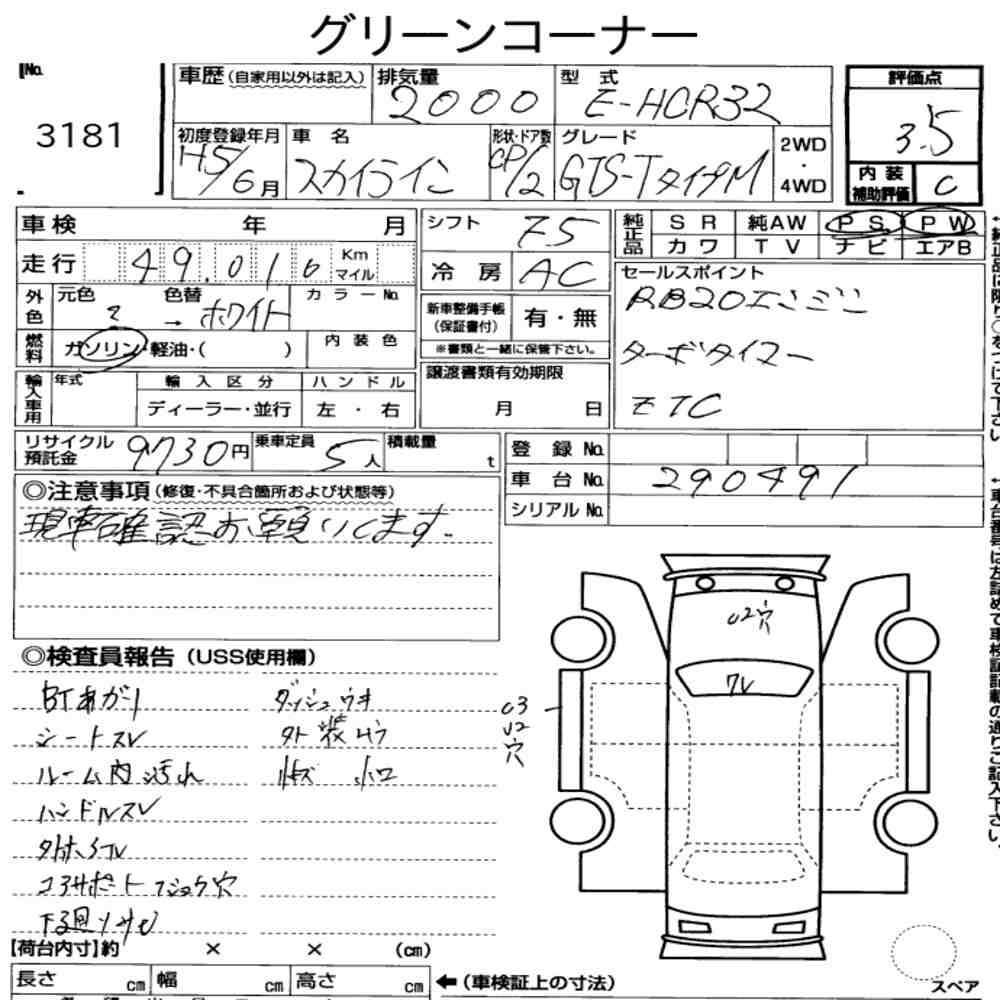 グリーンコーナー
No.
3181
車歴 (自家用以外は記入)
排気量
2000
型式
E-HCR32
評価点
3.5
初度登録年月
H5/6月
車名
スカイライン
形状・ドア数
CP/2
グレード
GTS-TタイプM
2WD
・
4WD
内装
補助評価
C
車検 年 月
シフト
F5
純正品
SR 純AW PS PW
カワ TV ナビ エアB
走行 49.016 Km マイル
冷房 AC
セールスポイント
RB20エンジン
ターボタイマー
ETC
外色
元色 色替
→ ホワイト
カラーNo.
新車整備手帳
(保証書付)
有・無
※書類と一緒に保管下さい。
燃料
ガソリン・軽油・( )
内装色
輸入車用
年式 輸入区分 ハンドル
ディーラー・並行 左・右
譲渡書類有効期限
月 日
リサイクル
預託金
9730円
乗車定員
5人
積載量
t
登録No.
車台No. 290491
シリアルNo.
◎注意事項 (修復・不具合箇所および状態等)
現車確認お願いします.
◎検査員報告 (USS使用欄)
BTあがり ダッシュウキ
シートスレ
ルーム内汚れ
ハンドルスレ
コアサポート 穴
U2穴
U3
U2
穴
【荷台内寸】約 × × (cm)
長さ cm 幅 cm 高さ cm
←(車検証上の寸法)
スペア
↑純正品は限り○をつけて下さい
↑車台番号は左詰めで車検証記載の通りご記入下さい。